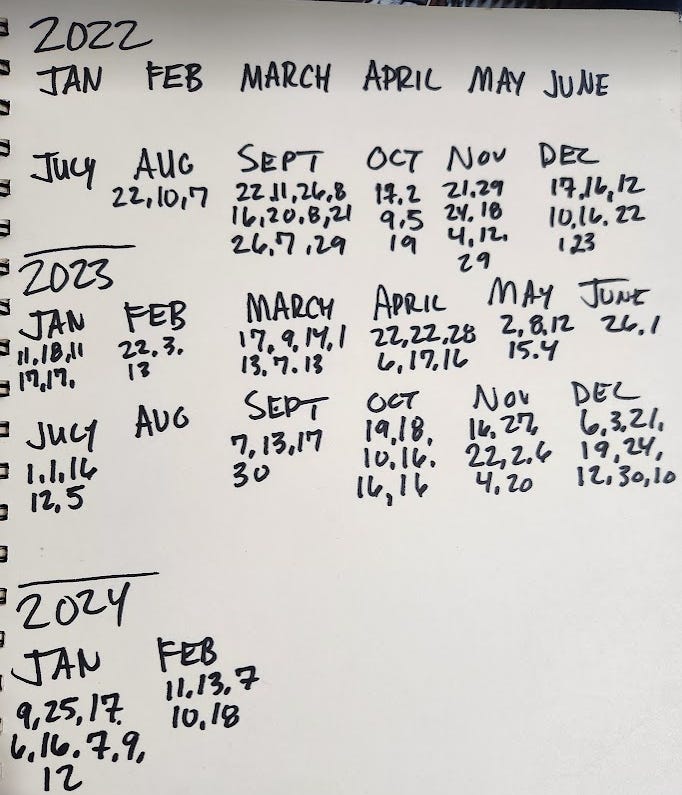 2022
JAN FEB MARCH APRIL MAY JUNE
JULY AUG SEPT OCT NOV DEC
22,10,7 22.11,26,8 17,2 21,29 17,16,12
16,20,8,21 9,5 24,18 10,16.22
26,7,29 19 4,12. 123
29
2023
JAN FEB MARCH APRIL MAY JUNE
11,18,11 22.3. 17,9,14,1 22,22,28 2,8,12 26,1
17,17. 13 13,7.13 6,17,16 15.4
JULY AUG SEPT OCT NOV DEC
1.1.16 7,13,17 19,18, 16,27, 6,3,21,
12,5 30 10,16. 22,2.6 19,24,
16,16 4,20 12,30,10
2024
JAN FEB
9,25,17. 11,13,7
6,16.7,9, 10,18
12